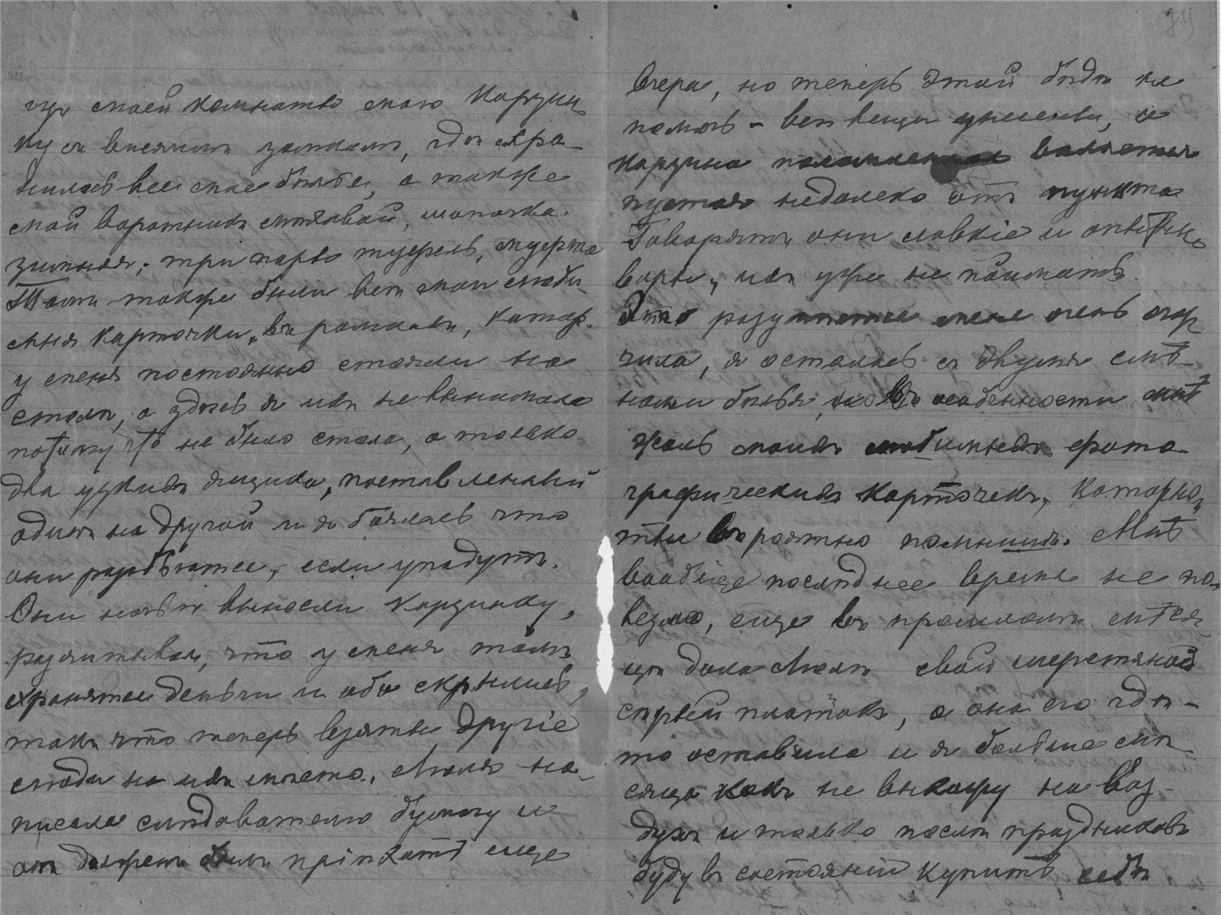 изъ моей комнаты мою корзин
ку съ висячимъ замкомъ, гдѣ хра
нилось все мое бѣлье, а также
мой воротникъ мѣховой, шапочка
зимняя; три пары туфель, муфта
Тамъ также были всѣ мои люби
мыя карточки, въ рамкахъ, котор.
у меня постоянно стояли на
столѣ, а здѣсь я ихъ не вынимала
потому что не было стола, а только
два узкихъ ящика, поставленный
одинъ на другой и я боялась что
они разобьются, если упадутъ.
Они вынесли корзинку,
разсчитывая, что у меня тамъ
хранятся деньги и оба скрылись,
такъ что теперь взяты другіе
люди на ихъ мѣсто. Люля на-
писала слѣдователю бумагу и
онъ долженъ былъ пріѣхать еще
Вчера, но теперь этой бѣдѣ не
помочь - всѣ вещи унесены, а
корзина валяется
пустая недалеко отъ пункта
Говорятъ они ловкіе и опытные
воры, ихъ уже не поймать.
Это разумѣется меня очень огор
чило, я осталась съ двумя смѣ-
нами бѣлья, но въ особенности мнѣ
жаль моихъ любимыхъ фото
графическихъ карточекъ, которыя
ты вѣроятно помнишь. Мнѣ
вообще послѣднее время не по
везло, еще въ прошломъ мѣся
цѣ дала Люлѣ свой шерстяной
сѣрый платокъ, а она его гдѣ-
то оставила и я больше мѣ-
сяца какъ не выхожу на воз-
духъ и только послѣ праздниковъ
буду въ состояніи купить себѣ